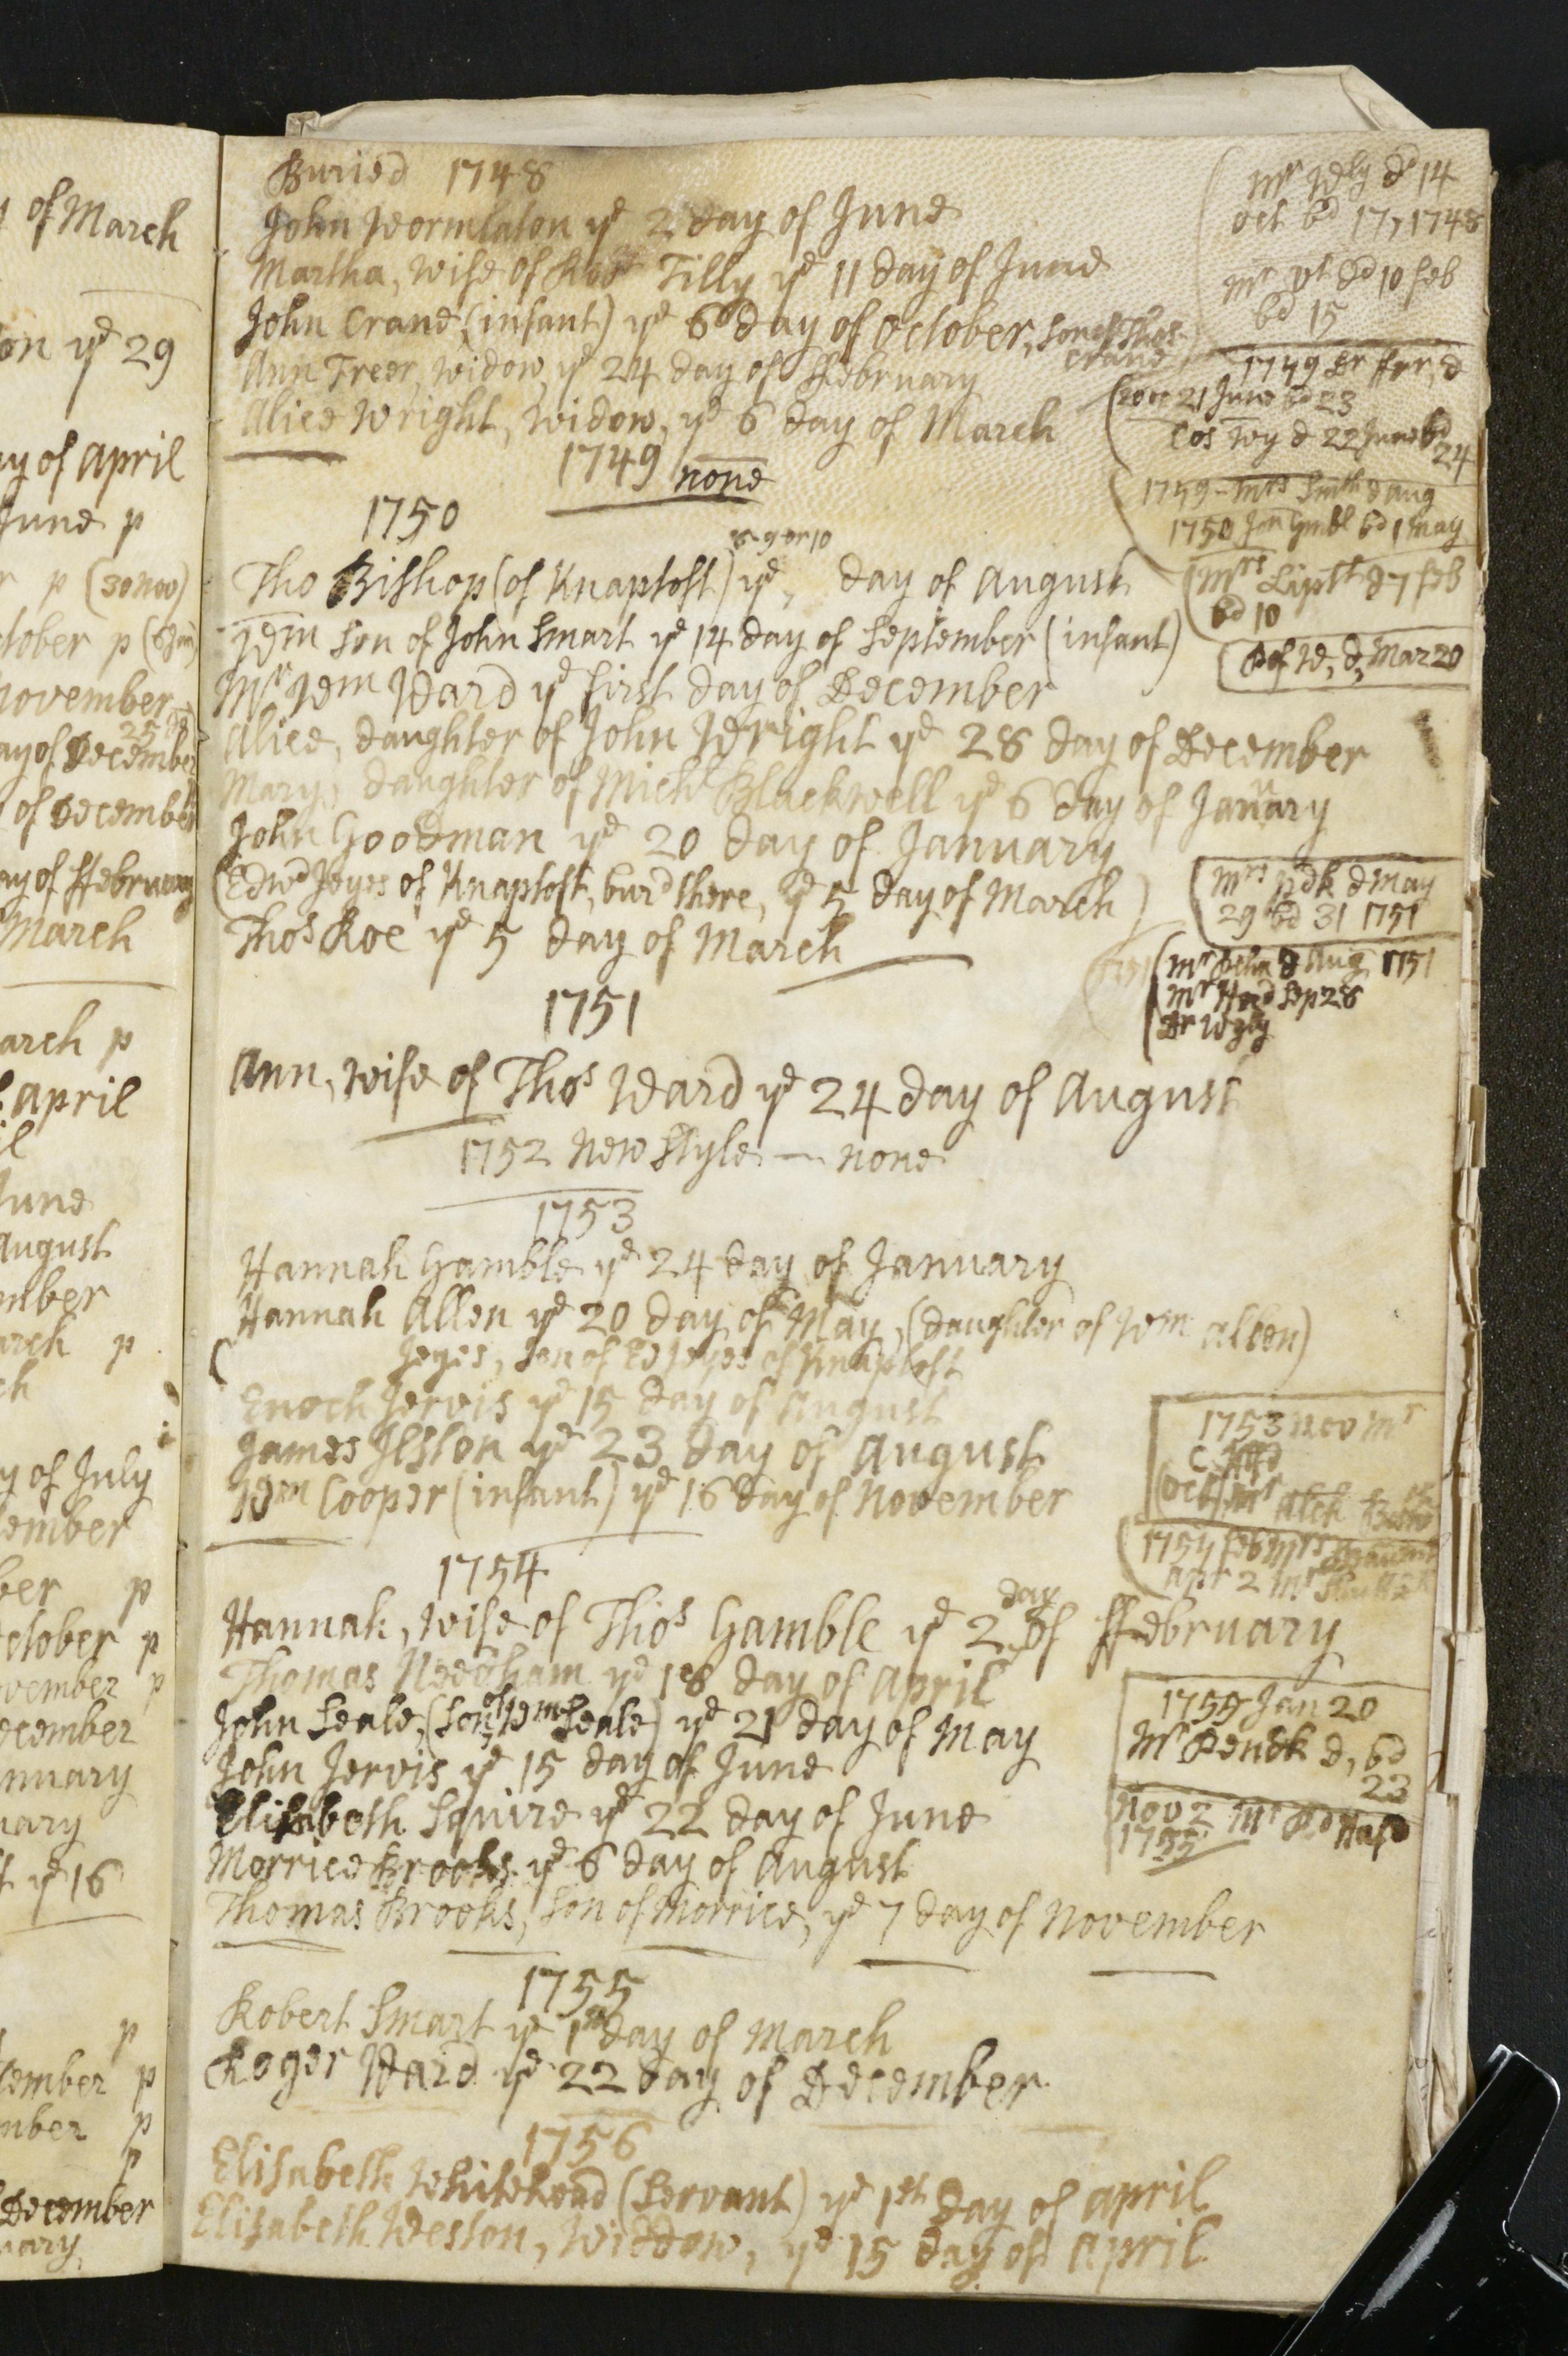 Buried 1748
John Wormlaton ye 2 day of June
Martha, wife of Tilly ye 11 day of June
John Crane, (infant) ye 6 day of October, son of Thos Crane
Ann Freer, widow, ye 24 day of ffebruary
Alice Wright, widow, ye 6 day of March
1749 none
1750
8-9 or 10
Tho Bishop (of Knaptoft) ye, day of August
Wm son of John Smart ye 14 day of September (infant)
Mr Wm Ward ye first day of December
Alice, daughter of John Wright ye 28 day of December
Mary, daughter of Michl Blackwell ye 6 day of January
John Goodman ye 20 day of January
(Edwd Jeyes of Knaptoft, burd there, ye 5 day of March)
Thos Roe ye 5 day of March
1751
Ann, wife of Thos Ward ye 24 day of August
1752 New Style — none
1753
Hannah Gamble ye 24 day of January
Hannah Allen ye 20 day of May, (daughter of Wm Allen)
( Jeyes, son of Ed Jeyes of Knaptoft
Enoch Jervis ye 15 day of August
James Ilston ye 23 day of August
Wm Cooper (infant) ye 16 day of November
1754
Hannah, wife of Thos Gamble ye 2 day of ffebruary
Thomas Needham ye 18 day of April
John Seale, (son of Wm Seale) ye 21 day of May
John Jervis ye 15 day of June
Elisabeth Squire ye 22 day of June
Morrice Brooks ye 6 day of August
Thomas Brooks, son of Morrice, ye 7 day of November
1755
Robert Smart ye 1st day of March
Roger Ward ye 22 day of December
1756
Elisabeth Whitehead (servant) ye 1st day of April
Elisabeth Weston, widdow, ye 15 day of April
Mr Wly dd 14
Oct bd 17, 1748
dd 10 feb
bd 15
1749 Dr
21 June bd 23
Cos Wy d 22 June bd 24
Mrs Smth d Aug
1750 Jon Gmbl bd 1 May
Mrs d 7 feb
bd 10
d, Mar 20
Mrs d May
29 bd 31 1751
Mr d Aug 1751
Mr Sep 28
Dr
1753 Nov Mr
Oct Mr
1754 feb Mrs
Apr 2 Mr
1755 Jan 20
Mr d, bd
23
Nov 2 Mr
1755
of March
on ye 29
ay of April
June p
p (30 Nov)
tober p
November
25
ay of December
of December
ay of ffebruary
March
arch p
April
il
June
August
mber
arch p
ch
y of July
tember
ber p
ctober p
vember p
ecember
nuary
uary
t ye 16
p
tember p
mber p
p
December
uary